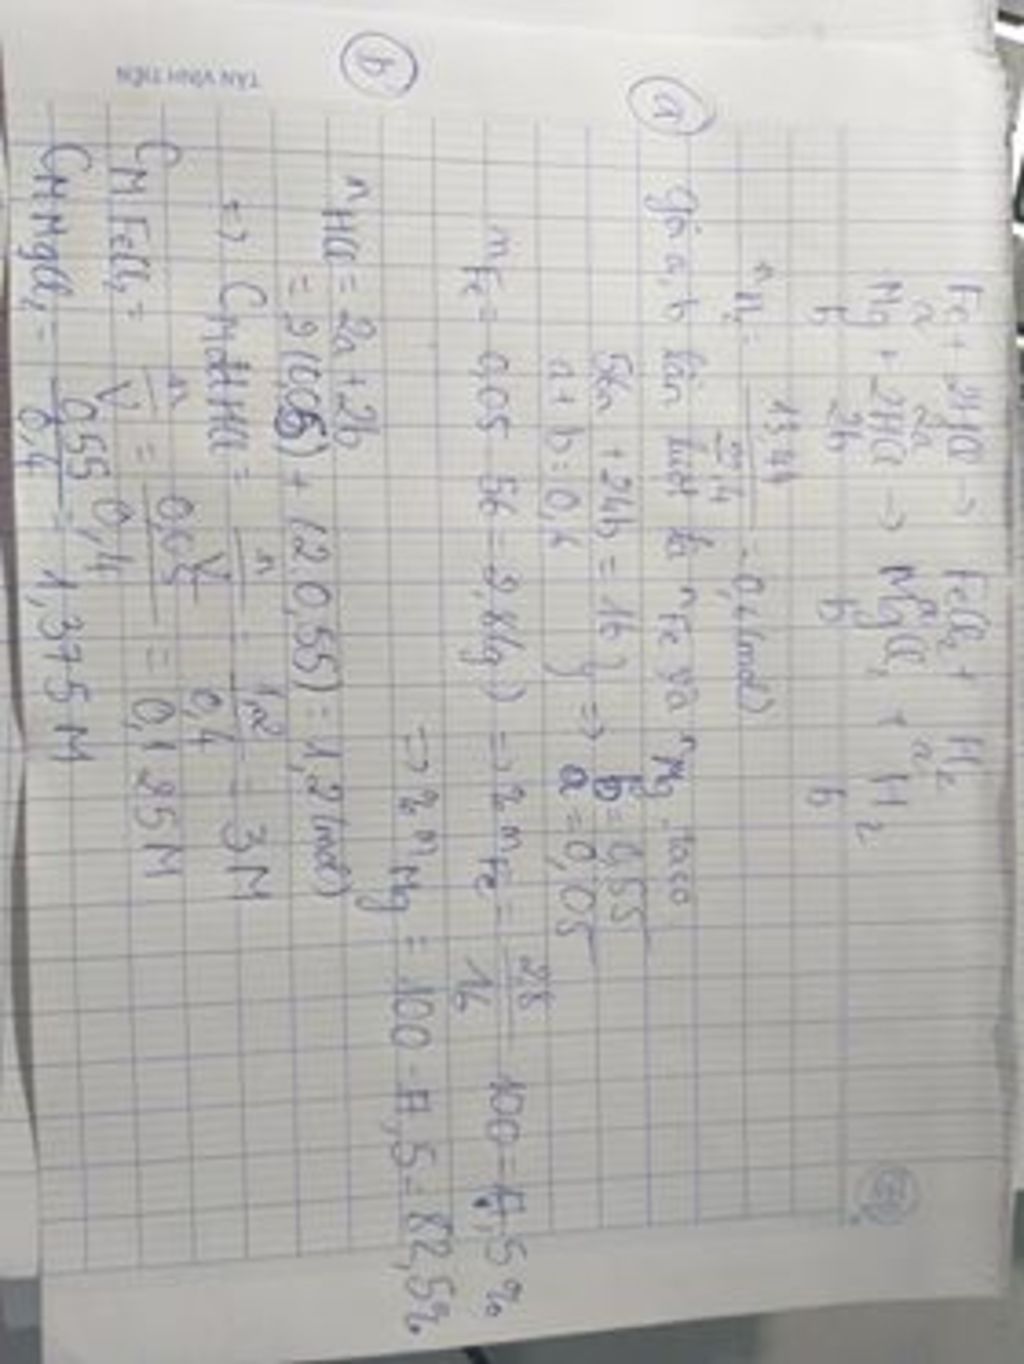 Fe + 2HCl → FeCl2 + H2
a 2a a a
Mg + 2HCl → MgCl2 + H2
b 2b b b
nH2 = 13,44 / 22,4 = 0,6 (mol)
a
Gọi a, b lần lượt là nFe và nMg. Ta có
56a + 24b = 16 } => b = 0,55
a + b = 0,6 a = 0,05
mFe = 0,05 . 56 = 2,8 (g) => % mFe = 2,8 / 16 . 100 = 17,5 %
=> % mMg = 100 - 17,5 = 82,5%
b
nHCl = 2a + 2b
= 2(0,05) + (2.0,55) = 1,2 (mol)
=> CM dd HCl = n / V = 1,2 / 0,4 = 3M
CM FeCl2 = n / V = 0,05 / 0,4 = 0,125M
CM MgCl2 = 0,55 / 0,4 = 1,375M
TÂN VĨNH TIẾN